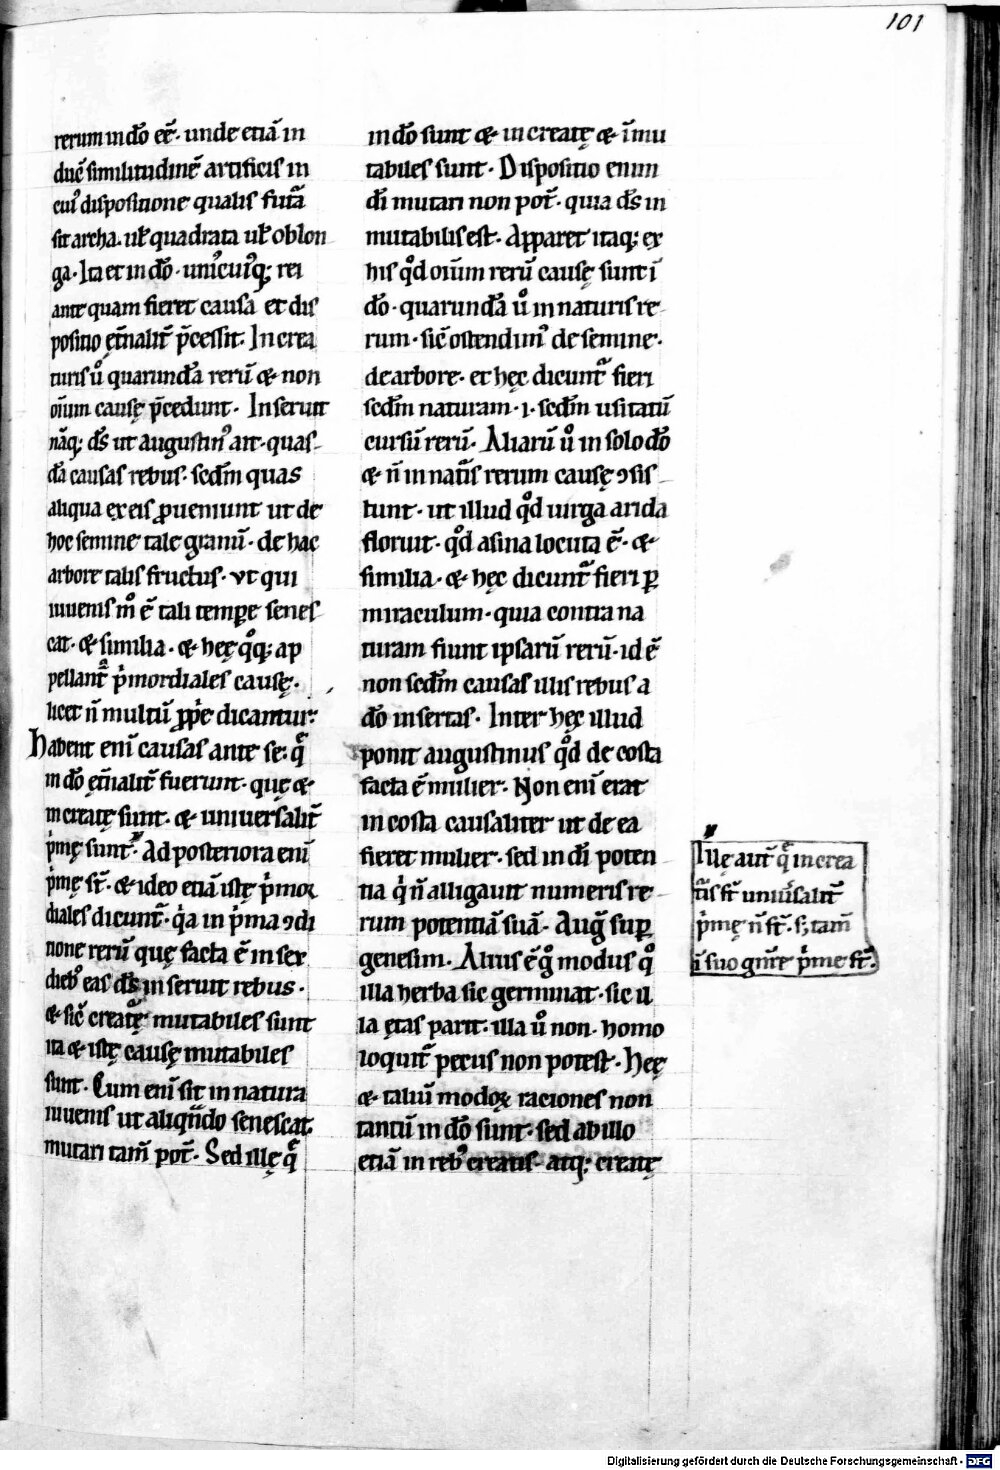 101
rerum in dō eē· unde etiā in
ducē similitudinē artificis in
cuiꝰ dispositione qualis futā
sit archa· ul̄ quadrata ul̄ oblon
ga· Ita et in dō· unicuiqꝫ rei
ante quam fieret causa et dis
positio et̄nalit̄ p̄cessit· In crea
turis ů quarundā rerū & non
oīum causę p̄cedunt· Inseruit
nāqꝫ ds̄ ut augustinꝰ ait· quas
dā causas rebus· scdm̄ quas
aliqua ex eis ꝓueniunt ut de
hoc semine tale granū· de hac
arbore talis fructus· vt qui
iuuenis m̊ ē tali tempe senes
cat· & similia· & hęc qͦqꝫ ap
pellant̄ p̍mordiales causę·
licet n̄ multū ꝓpe dicantur·
Habent eni̅ causas ante se· qͣ
in dō et̄nalit̄ fuerunt· quę &
increatę sunt· & uniuersalit̄
p̍mę sunt· Ad posteriora eni̅
p̍mę st̄· & ideo etiā istę p̍mor
diales dicunt̄· qͥa in p̍ma ꝯdi
tione rerū quę facta ē in sex
diebꝰ eas ds̄ inseruit rebus·
& sic̄ creatę mutabiles sunt
ita & istę causę mutabiles
sunt· Cum eni̅ sit in natura
iuuenis ut aliqn̄do senescat
mutari tam̄ pot̄· Sed illę qͣ
in dō sunt & increatę & īmu
tabiles sunt· Dispositio enim
dī mutari non pot̄· quia ds̄ in
mutabilis est· Apparet itaqꝫ ex
his qd̊ oīum rerū causę sunt ī
dō· quarundā ů in naturis re
rum· sic̄ ostendimꝰ de semine·
de arbore· et hęc dicunt̄ fieri
scdm̄ naturam· ·i· scdm̄ usitatū
cursū rerū· Aliarū ů in solo dō
& n̄ in nat̄is rerum causę ꝯsis
tunt· ut illud qd̊ uirga arida
floruit· qd̊ asina locuta ē· &
similia· & hęc dicunt̄ fieri ꝑ
miraculum· quia contra na
turam fiunt ipsarū rerū· id ē
non scdm̄ causas illis rebus a
dō insertas· Inter hęc illud
ponit augustinus qd̊ de costa
facta ē mulier· Non eni̅ erat
in costa causaliter ut de ea
fieret mulier· sed in dī poten
tia qͥ n̄ alligauit numeris re
rum potentiā suā· Aug̅ suꝑ
genesim· Alius ē g̊ modus qͦ
illa herba sic germinat· sic il
la ętas parit· illa ů non· homo
loquit̄ pecus non potest· Hęc
& taliū modoꝝ raciones non
tantū in dō sunt· sed ab illo
etiā in rebꝰ creatis· atqꝫ creatę
Illę aut̄ qͣ in crea
tͥis st̄ uniūsalit̄
p̍mę n̄ st̄· sꝫ tam̄
ī suo gn̄re p̍me st̄·
Digitalisierung gefördert durch die Deutsche Forschungsgemeinschaft - DFG